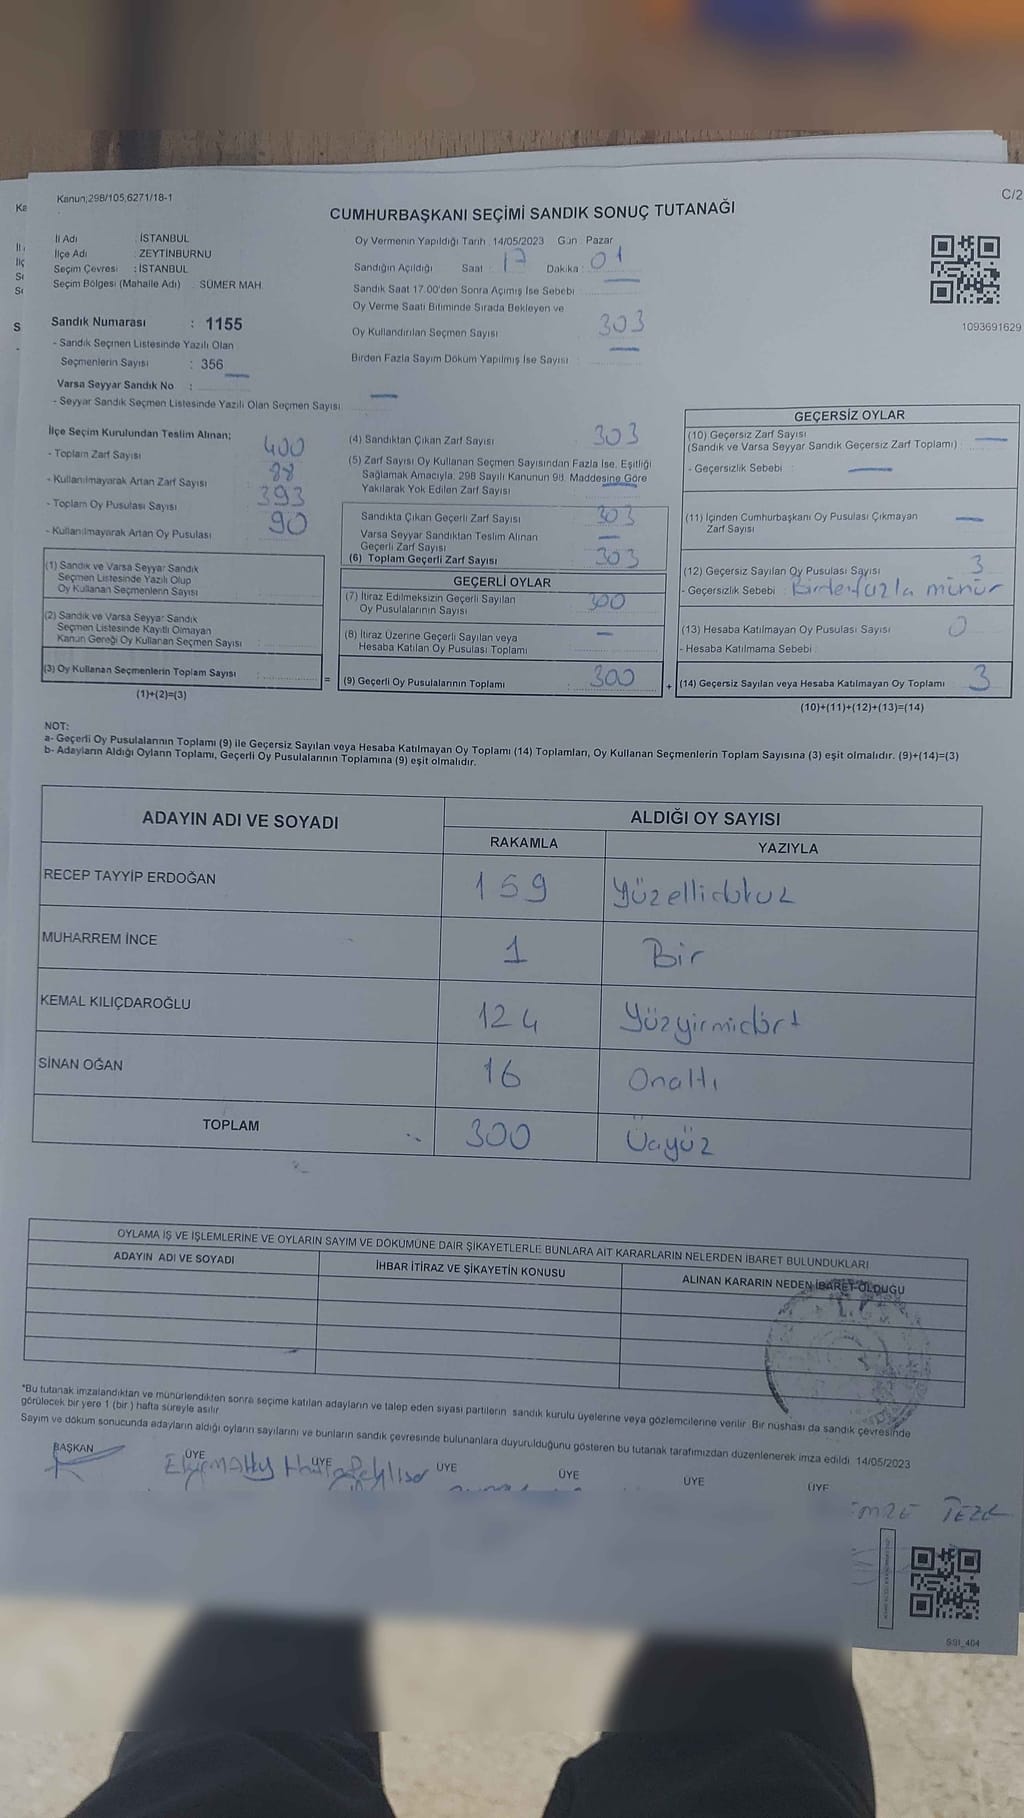 Kanun;298/105,6271/18-1
C/2
CUMHURBAŞKANI SEÇİMİ SANDIK SONUÇ TUTANAĞI
İl Adı : İSTANBUL
İlçe Adı : ZEYTİNBURNU
Seçim Çevresi : İSTANBUL
Seçim Bölgesi (Mahalle Adı) : SÜMER MAH.
Oy Vermenin Yapıldığı Tarih :14/05/2023 Gün : Pazar
Sandığın Açıldığı Saat : 17 Dakika : 01
Sandık Saat 17.00'den Sonra Açımış İse Sebebi :
Oy Verme Saati Bitiminde Sırada Bekleyen ve
Oy Kullandırılan Seçmen Sayısı : 303
Birden Fazla Sayım Döküm Yapılmış İse Sayısı :
1093691629
Sandık Numarası : 1155
- Sandık Seçmen Listesinde Yazılı Olan
Seçmenlerin Sayısı : 356
Varsa Seyyar Sandık No :
- Seyyar Sandık Seçmen Listesinde Yazılı Olan Seçmen Sayısı:
İlçe Seçim Kurulundan Teslim Alınan;
- Toplam Zarf Sayısı 400
- Kullanılmayarak Artan Zarf Sayısı
- Toplam Oy Pusulası Sayısı 393
- Kullanılmayarak Artan Oy Pusulası 90
(1) Sandık ve Varsa Seyyar Sandık
Seçmen Listesinde Yazılı Olup
Oy Kullanan Seçmenlerin Sayısı :
(2) Sandık ve Varsa Seyyar Sandık
Seçmen Listesinde Kayıtlı Olmayan
Kanun Gereği Oy Kullanan Seçmen Sayısı :
(3) Oy Kullanan Seçmenlerin Toplam Sayısı :
(1)+(2)=(3)
=
(4) Sandıktan Çıkan Zarf Sayısı 303
(5) Zarf Sayısı Oy Kullanan Seçmen Sayısından Fazla İse, Eşitliği
Sağlamak Amacıyla, 298 Sayılı Kanunun 98. Maddesine Göre
Yakılarak Yok Edilen Zarf Sayısı
Sandıkta Çıkan Geçerli Zarf Sayısı 303
Varsa Seyyar Sandıktan Teslim Alınan
Geçerli Zarf Sayısı
(6) Toplam Geçerli Zarf Sayısı 303
GEÇERLİ OYLAR
(7) İtiraz Edilmeksizin Geçerli Sayılan
Oy Pusulalarının Sayısı 300
(8) İtiraz Üzerine Geçerli Sayılan veya
Hesaba Katılan Oy Pusulası Toplamı
(9) Geçerli Oy Pusulalarının Toplamı 300
+
GEÇERSİZ OYLAR
(10) Geçersiz Zarf Sayısı
(Sandık ve Varsa Seyyar Sandık Geçersiz Zarf Toplamı) :
- Geçersizlik Sebebi :
(11) İçinden Cumhurbaşkanı Oy Pusulası Çıkmayan
Zarf Sayısı
(12) Geçersiz Sayılan Oy Pusulası Sayısı 3
- Geçersizlik Sebebi : Birden fazla mühür
(13) Hesaba Katılmayan Oy Pusulası Sayısı 0
- Hesaba Katılmama Sebebi
(14) Geçersiz Sayılan veya Hesaba Katılmayan Oy Toplamı 3
(10)+(11)+(12)+(13)=(14)
NOT:
a- Geçerli Oy Pusulalarının Toplamı (9) ile Geçersiz Sayılan veya Hesaba Katılmayan Oy Toplamı (14) Toplamları, Oy Kullanan Seçmenlerin Toplam Sayısına (3) eşit olmalıdır. (9)+(14)=(3)
b- Adayların Aldığı Oyların Toplamı, Geçerli Oy Pusulalarının Toplamına (9) eşit olmalıdır.
ADAYIN ADI VE SOYADI
ALDIĞI OY SAYISI
RAKAMLA YAZIYLA
RECEP TAYYİP ERDOĞAN 159 Yüzellidokuz
MUHARREM İNCE 1 Bir
KEMAL KILIÇDAROĞLU 124 Yüzyirmidört
SİNAN OĞAN 16 Onaltı
TOPLAM 300 Üçyüz
OYLAMA İŞ VE İŞLEMLERİNE VE OYLARIN SAYIM VE DÖKÜMÜNE DAİR ŞİKAYETLERLE BUNLARA AİT KARARLARIN NELERDEN İBARET BULUNDUKLARI
ADAYIN ADI VE SOYADI İHBAR İTİRAZ VE ŞİKAYETİN KONUSU ALINAN KARARIN NEDEN İBARET OLDUĞU
*Bu tutanak imzalandıktan ve mühürlendikten sonra seçime katılan adayların ve talep eden siyasi partilerin sandık kurulu üyelerine veya gözlemcilerine verilir. Bir nüshası da sandık çevresinde
görülecek bir yere 1 (bir) hafta süreyle asılır.
Sayım ve döküm sonucunda adayların aldığı oyların sayılarını ve bunların sandık çevresinde bulunanlara duyurulduğunu gösteren bu tutanak tarafımızdan düzenlenerek imza edildi. 14/05/2023
BAŞKAN ÜYE ÜYE ÜYE ÜYE ÜYE ÜYE
SSI_404